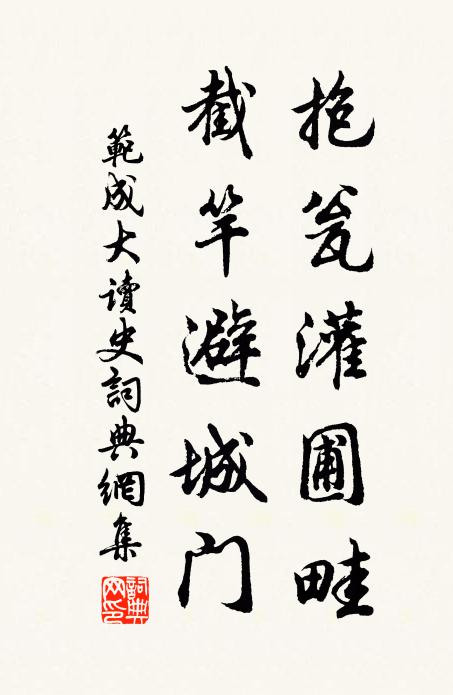 抱瓮灌圃畦
截竿避城门
範成大读史詞典網集
詞典网印